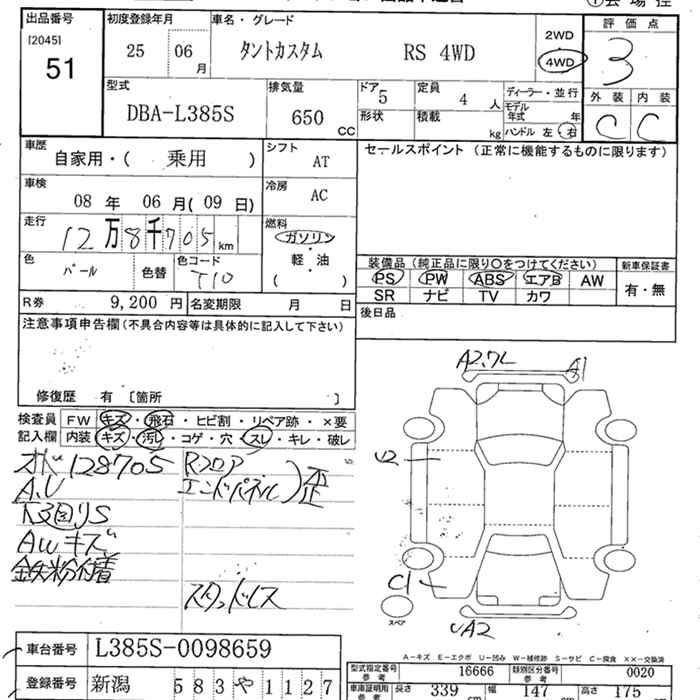 出品番号 初度登録年月 車名・グレード 評価点
[2045]
51 25 06 月 タントカスタム RS 4WD 2WD 4WD 3
型式 排気量 ドア 5 定員 4 人 ディーラー・並行 外装 内装
DBA-L385S 650 CC 形状 積載 kg モデル年式 年 ハンドル 左・右 C C
車歴 自家用・( 乗用 ) シフト AT セールスポイント (正常に機能するものに限ります)
車検 08 年 06 月( 09 日) 冷房 AC
走行 12万8千705km 燃料 ガソリン・軽・油 ( )
色 パール 色替 色コード T10 装備品 (純正品に限り〇をつけてください) 新車保証書
PS PW ABS エアB AW 有・無
SR ナビ TV カワ
R券 9,200 円 名変期限 月 日 後日品
注意事項申告欄 (不具合内容等は具体的に記入して下さい)
修復歴 有 [箇所 ]
検査員 FW キズ・飛石・ヒビ割・リペア跡・×要
記入欄 内装 キズ・汚レ・コゲ・穴・スレ・キレ・破レ
128705 Rフロア
A.U エンドパネル)歪
下回りS
AWキズ
鉄粉付着
スタッドレス
A2.7L A1
U2
C1
スペア
UA2
A-キズ E-エクボ U-凹み W-補修跡 S-サビ C-腐食 XX-交換済
車台番号 L385S-0098659
型式指定番号 参考 16666 類別区分番号 参考 0020
登録番号 新潟 583や1127
車庫証明用 参考 長さ 339 cm 幅 147 cm 高さ 175 cm